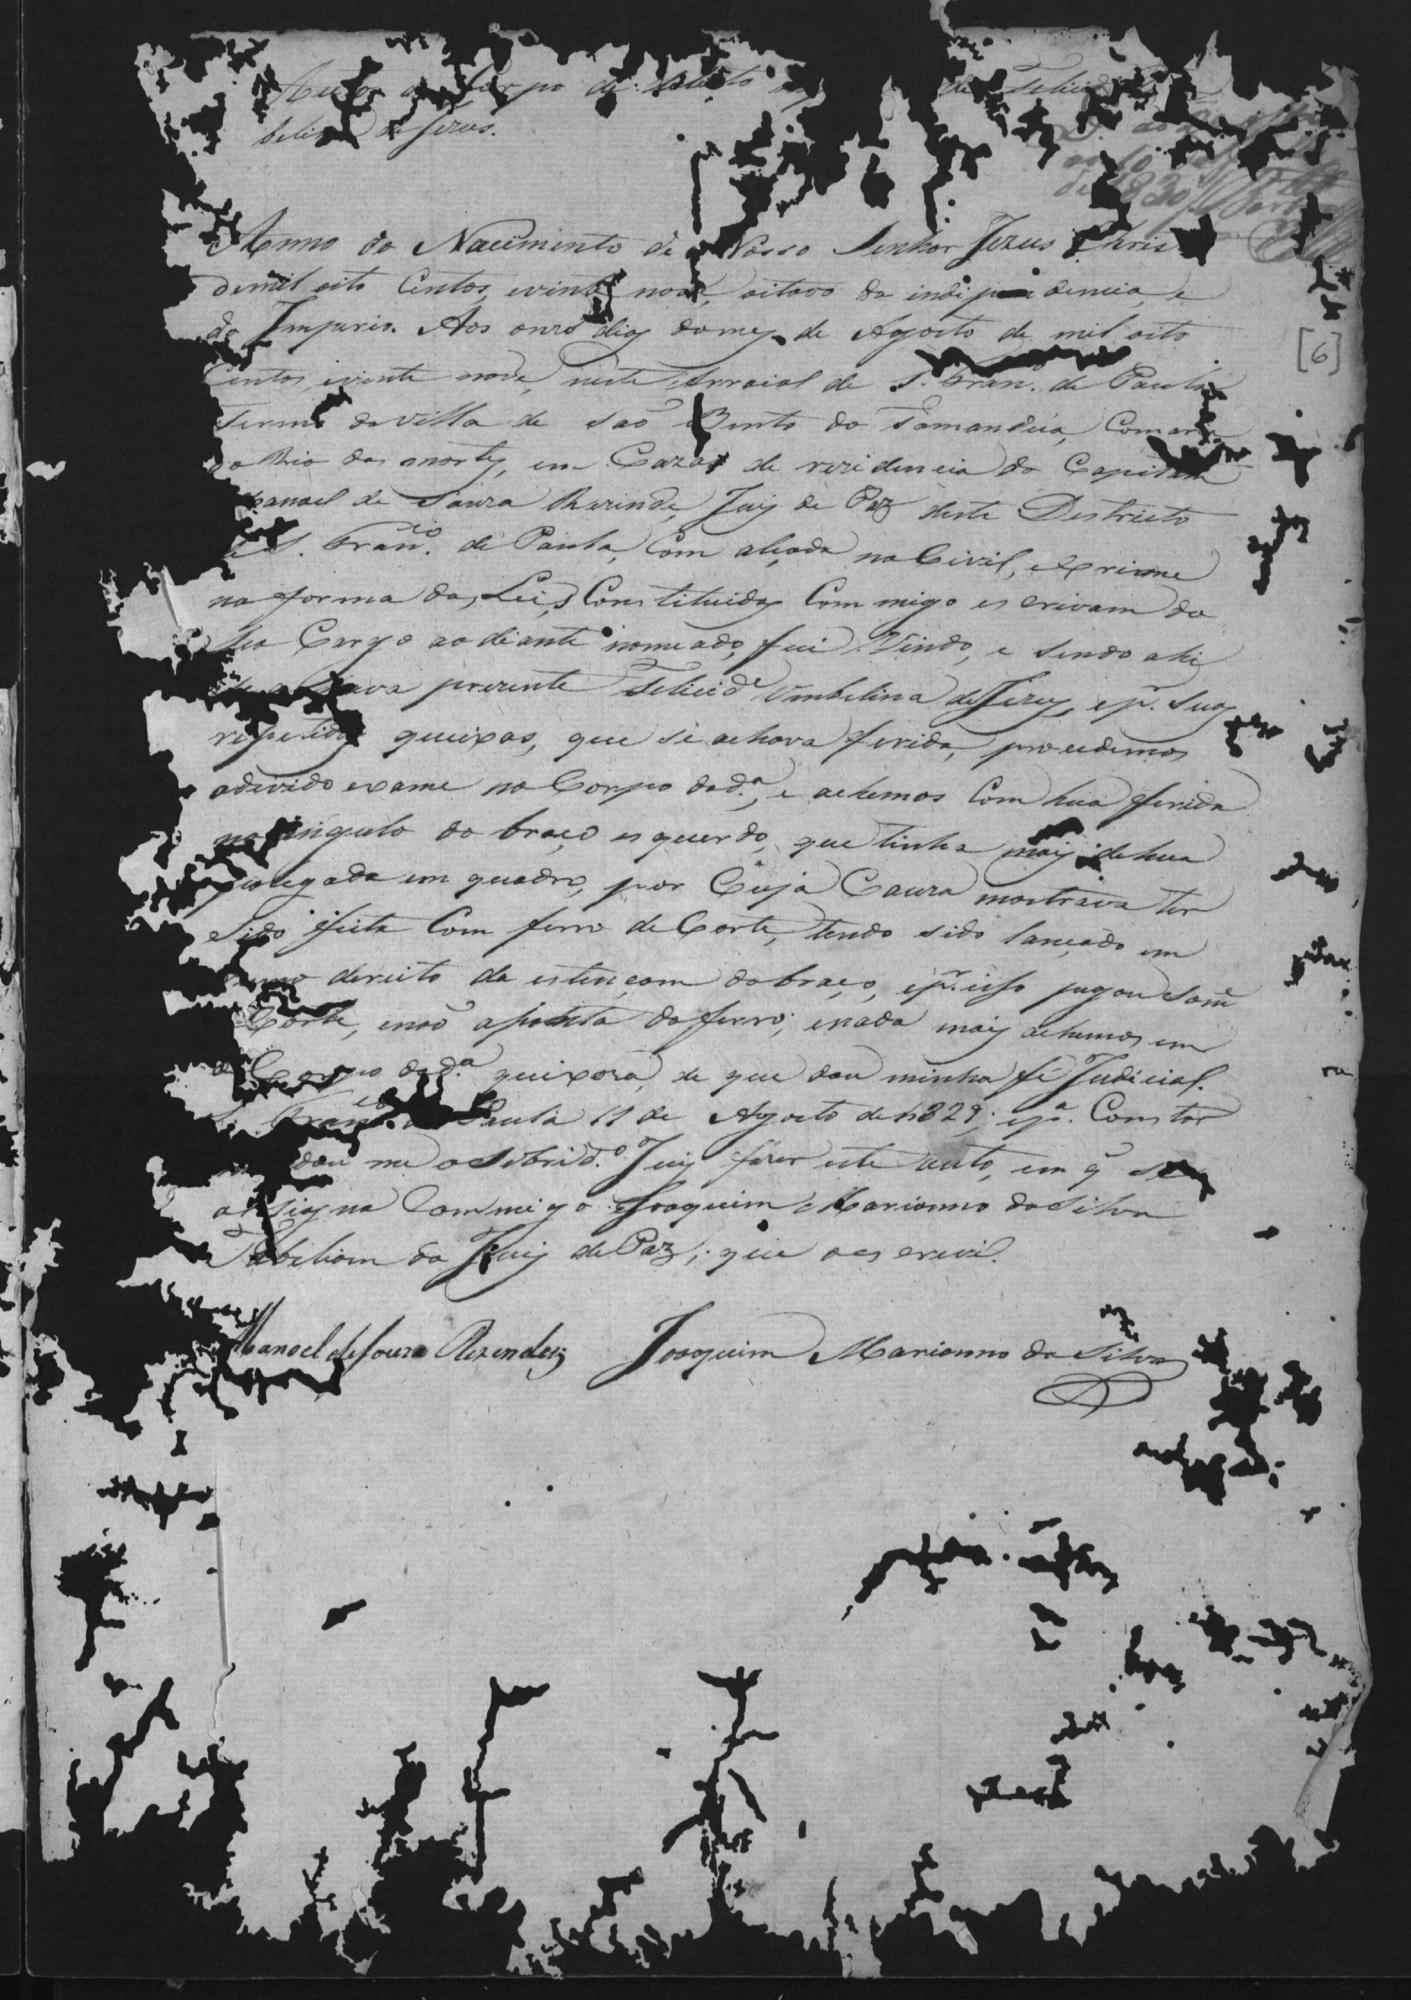 Auto de Corpo de delito de Felicid.e
belina de Jezus.
de 1830
Anno do Nacimento de Nosso Senhor Jezus Chris
demil oito Centos, evinte nove, oitavo da indipendencia, e
do Imperio. Aos onze dias domes de Agosto de mil oito
Centos, evinte nove, neste Arraial de S. Fran.co de Paula
Termo da Villa de São Bento do Tamanduá, Comarca
do Rio das mortes, em Cazas de rezidencia do Capitam
Manoel de Souza Rezende, Juis de Paz deste Destricto
de S. Fran.co de Paula, Com alçada no Civil, e Crime
na forma das Leis, Constituidas Com migo escrivam do
seo Cargo ao diante nomeado, fui Vindo, e sendo ahi
se achava prezente Felicid.e Umbelina de Jezus, e p.r suas
repetidas queixas, que se achava ferida, procedemos
adivido exame no Corpo dad.a, e achemos Com hua ferida
no angulo do braço esquerdo, que tinha mais de hua
polegada em quadro, por Cuja Cauza mostrava ter
sido feita Com ferro de Corte, tendo sido lançado em
rumo dereito da estençam dobraço, e p.r isso pegou Som.e
o Corte, enão aponta do ferro; enada mais achemos em
o Corpo dad.a queixoza, de que dou minha fé Judicial.
S. Fran.co de Paula 11 de Agosto de 1829; ep.a Constar
mandou me o Sobrid.o Juis fazer este auto, em q̃ se
asigna Commigo Joaquim Marianno da Silva
Tabeliam do Juis de Paz, que o escrevi.
Manoel de Souza Rezende Joaquim Marianno da Silva
[6]